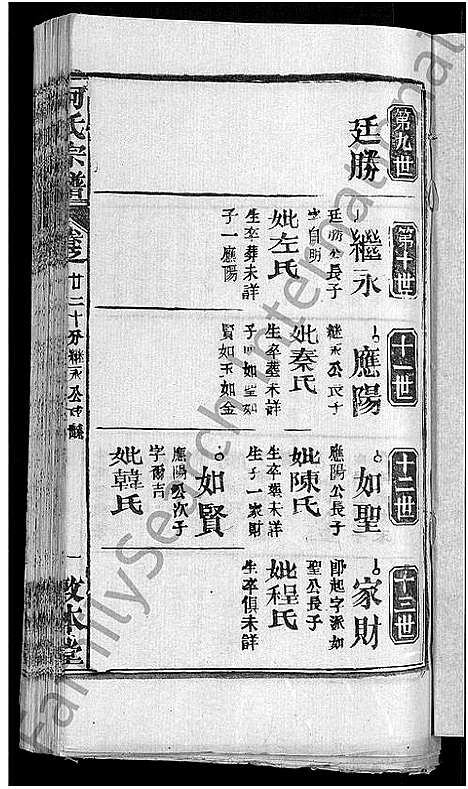 第九世
廷勝
第十世
繼永
廷勝公長子
字自明
妣左氏
生卒葬未詳
子一應陽
十一世
應陽
繼永公長子
妣秦氏
生卒葬未詳
子四如聖如
賢如玉如金
十二世
如聖
應陽公長子
妣陳氏
生卒葬未詳
生子一家財
如賢
應陽公次子
字爾吉
妣韓氏
十三世
家財
即起字派如
聖公長子
妣程氏
生卒俱未詳
何氏宗譜
卷之廿二十分繼永公支
一
敦本堂
FamilySearch International